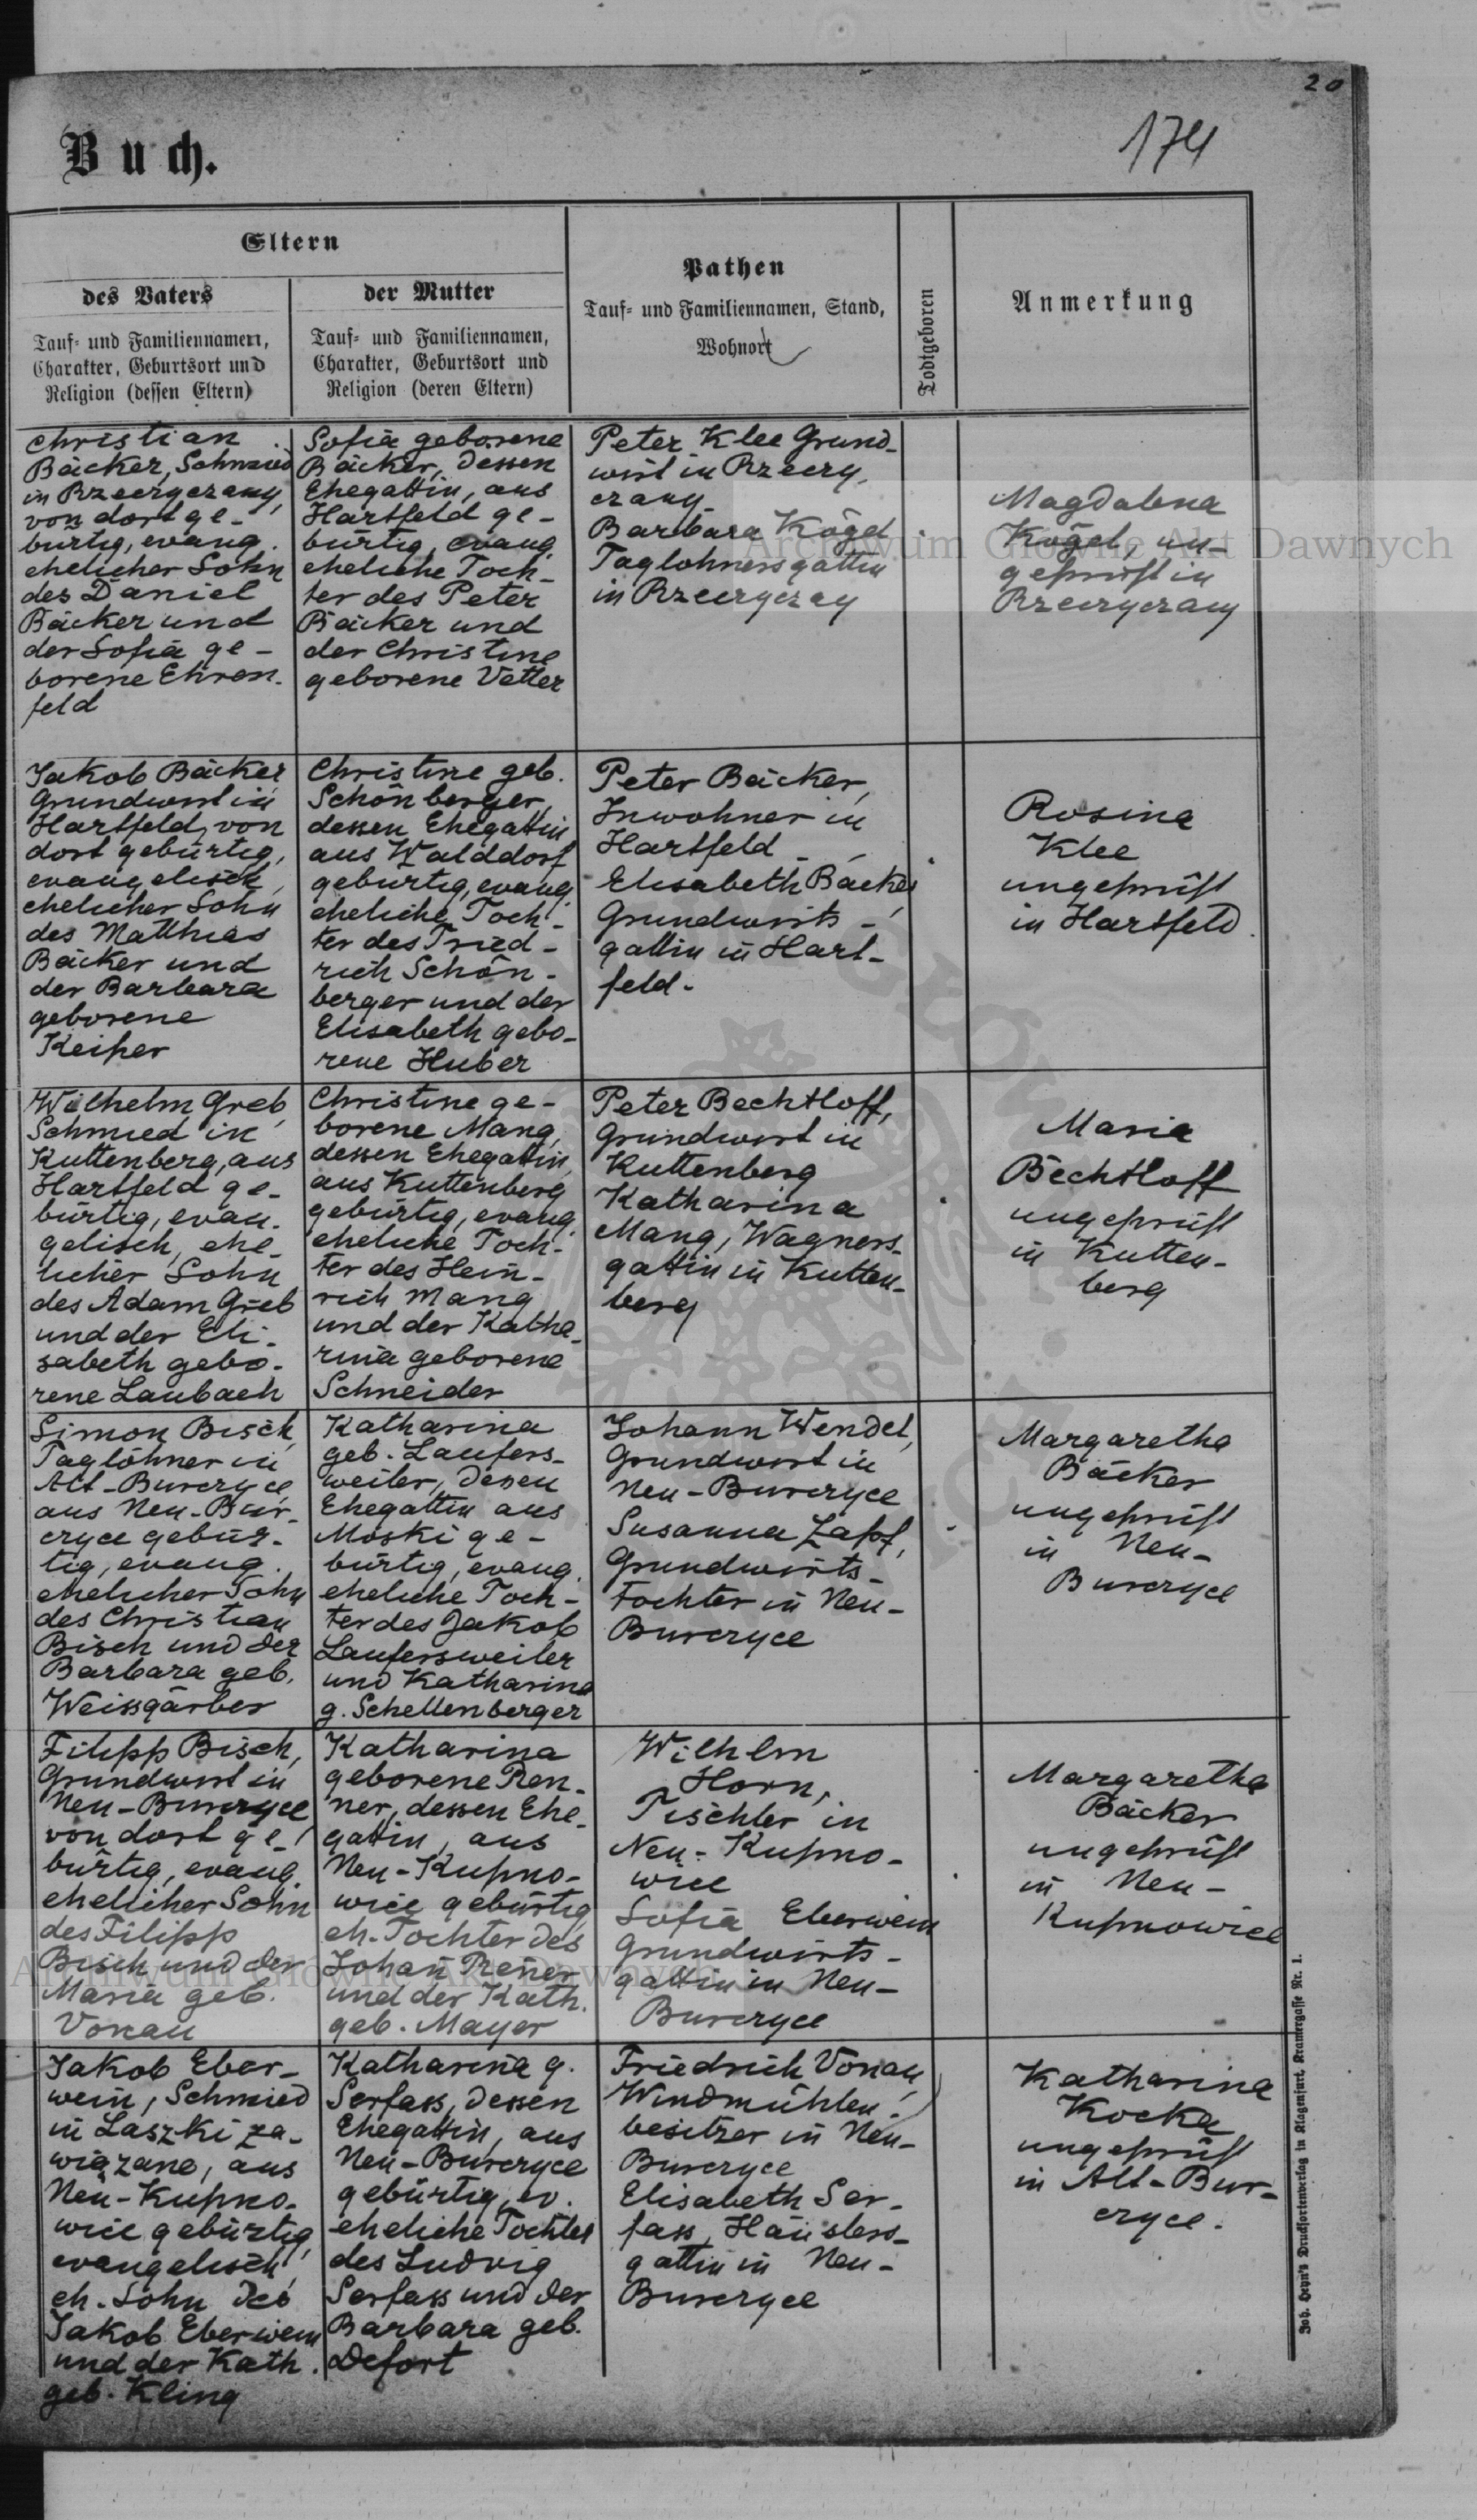 20
174
Buch.
Eltern
des Vaters
Tauf- und Familiennamen,
Charakter, Geburtsort und
Religion (dessen Eltern)
der Mutter
Tauf- und Familiennamen,
Charakter, Geburtsort und
Religion (deren Eltern)
Pathen
Tauf- und Familiennamen, Stand,
Wohnort
Todtgeboren
Anmerkung
Christian
Bäcker, Schmied
in Rzeczyczany,
von dort ge-
bürtig, evang.
ehelicher Sohn
des Daniel
Bäcker und
der Sofia ge-
borene Ehren-
feld
Sofia geborene
Bäcker, dessen
Ehegattin, aus
Hartfeld ge-
bürtig, evang.
eheliche Toch-
ter des Peter
Bäcker und
der Christine
geborene Vetter
Peter Klee Grund-
wirt in Rzeczy-
czany.
Barbara Kögel
Taglohnersgattin
in Rzeczyczay
Magdalena
Kögel, un-
geprüft in
Rzeczyczany
Jakob Bäcker,
Grundwirt in
Hartfeld, von
dort gebürtig,
evangelisch,
ehelicher Sohn
des Matthias
Bäcker und
der Barbara
geborene
Keiper
Christine geb.
Schönberger,
dessen Ehegattin
aus Walddorf
gebürtig, evang.
eheliche Toch-
ter des Fried-
rich Schön-
berger und der
Elisabeth gebo-
rene Huber
Peter Bäcker,
Inwohner in
Hartfeld -
Elisabeth Bäcker,
Grundwirts-
gattin in Hart-
feld.
Rosina
Klee
ungeprüft
in Hartfeld.
Wilhelm Greb,
Schmied in
Kuttenberg, aus
Hartfeld ge-
bürtig, evan-
gelisch, ehe-
licher Sohn
des Adam Greb
und der Eli-
sabeth gebo-
rene Laubach
Christine ge-
borene Mang,
dessen Ehegattin,
aus Kuttenberg
gebürtig, evang.
eheliche Toch-
ter des Hein-
rich Mang
und der Katha-
rina geborene
Schneider
Peter Bechtloff,
Grundwirt in
Kuttenberg
Katharina
Mang, Wagners-
gattin in Kutten-
berg
Maria
Bechtloff
ungeprüft
in Kutten-
berg
Simon Bisch,
Taglöhner in
Alt-Burczyce,
aus Neu-Bur-
czyce gebür-
tig, evang.
ehelicher Sohn
des Christian
Bisch und der
Barbara geb.
Weissgärber
Katharina
geb. Laufers-
weiler, dessen
Ehegattin aus
Moski ge-
bürtig, evang.
eheliche Toch-
ter des Jakob
Laufersweiler
und Katharina
g. Schellenberger
Johann Wendel,
Grundwirt in
Neu-Burczyce
Susanna Zapf,
Grundwirts-
tochter in Neu-
Burczyce
Margaretha
Bäcker
ungeprüft
in Neu-
Burczyce
Filipp Bisch,
Grundwirt in
Neu-Burczyce
von dort ge-
bürtig, evang.
ehelicher Sohn
des Filipp
Bisch und der
Maria geb.
Vonau
Katharina
geborene Ren-
ner, dessen Ehe-
gattin, aus
Neu-Kupno-
wice gebürtig
eh. Tochter des
Johañ Reñer
und der Kath.
geb. Mayer
Wilhlm
Horn,
Tischler in
Neu-Kupno-
wice
Sofia Eberwein
Grundwirts-
gattin in Neu-
Burczyce
Margaretha
Bäcker
ungeprüft
in Neu-
Kupnowice
Jakob Eber-
wein, Schmied
in Laszki za-
wiązane, aus
Neu-Kupno-
wice gebürtig,
evangelisch,
eh. Sohn des
Jakob Eberwein
und der Kath.
geb. Kling
Katharina g.
Serfass, dessen
Ehegattin, aus
Neu-Burczyce
gebürtig, ev.
eheliche Tochter
des Ludvig
Serfass und der
Barbara geb.
Defort
Friedrich Vonau,
Windmühlen-
besitzer in Neu-
Burczyce
Elisabeth Ser-
fass, Häuslers-
gattin in Neu-
Burczyce
Katharina
Kocka
ungeprüft
in Alt-Bur-
czyce.
Joh. Heyn's Drucksortenverlag in Klagenfurt, Kramergasse Nr. 1.
Archiwum Główne Akt Dawnych
Archiwum Główne Akt Dawnych